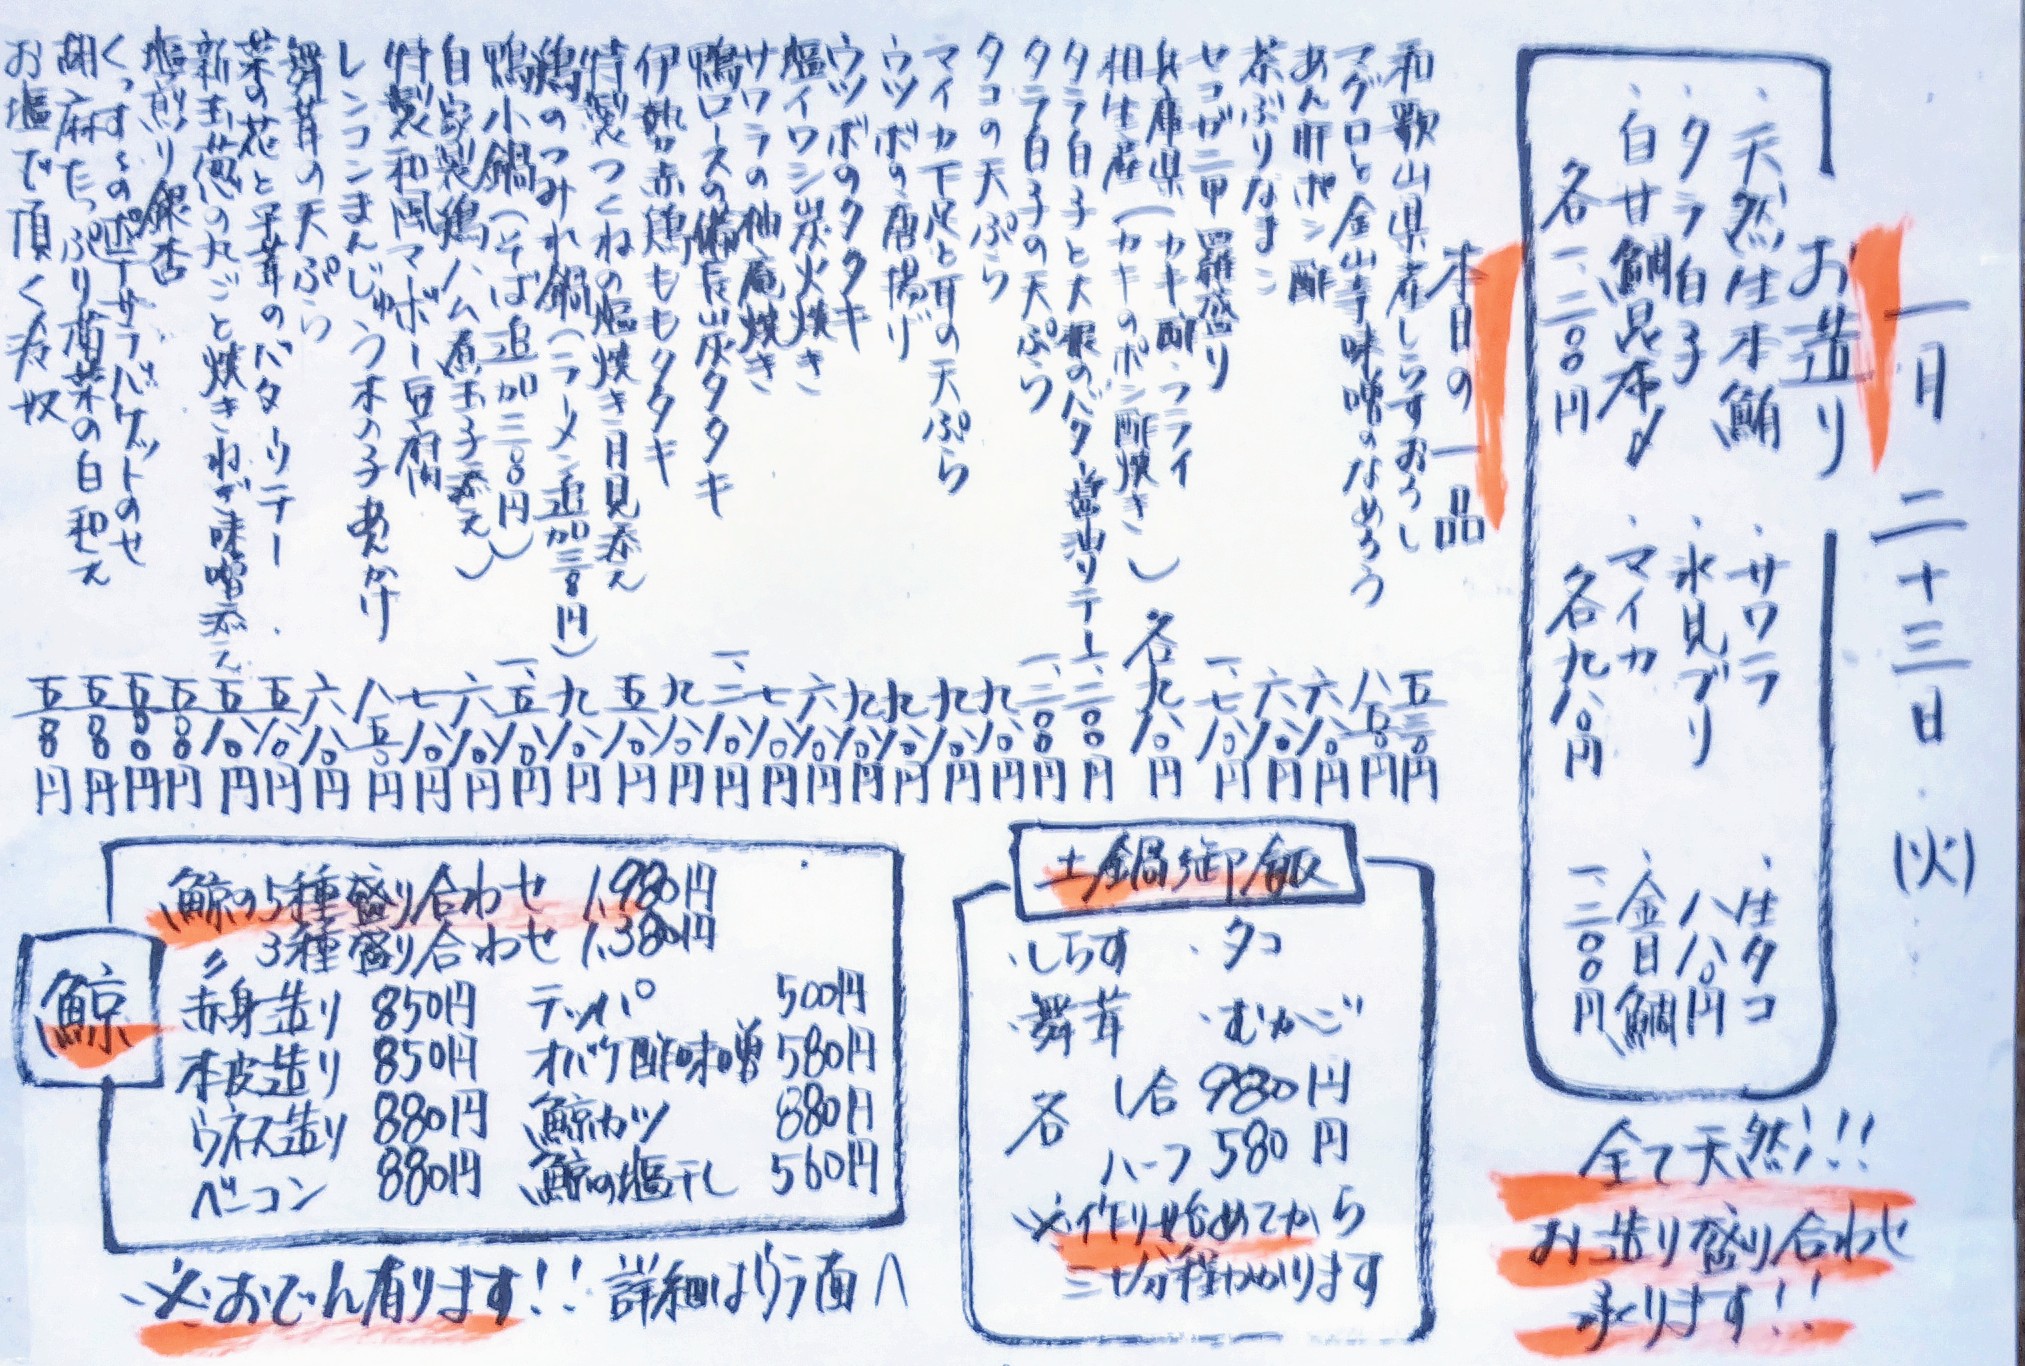 一月二十三日(火)
お造り
・天然生本鮪
・タラ白子
・白甘鯛昆布〆
各一、二〇〇円
・サワラ
・氷見ブリ
・マイカ
各九八〇円
・生タコ
八八〇円
・金目鯛
一、二〇〇円
全て天然!!
お造り盛り合わせ
承ります!!
本日の一品
和歌山県産しらすおろし 五三〇円
マグロと金山寺味噌のなめろう 八五〇円
あん肝ポン酢 六八〇円
茶ぶりなまこ 六八〇円
セコガニ甲羅盛り 一、七八〇円
兵庫県(カキ酢・フライ
相生産(カキのポン酢焼き) 各九八〇円
タラ白子と大根のバター醤油ソテー 一、二〇〇円
タラ白子の天ぷら 一、二〇〇円
タコの天ぷら 九八〇円
マイカ下足と耳の天ぷら 九八〇円
ウツボの唐揚げ 九八〇円
ウツボのタタキ 九八〇円
塩イワシ炭火焼き 六八〇円
サワラの柚庵焼き 七八〇円
鴨ロースの備長炭タタキ 一、二八〇円
伊勢赤鶏ももタタキ 九八〇円
特製つくねの塩焼き月見添え 五八〇円
鶏のつみれ鍋(ラーメン追加三〇〇円) 九八〇円
鴨小鍋(そば追加三〇〇円) 一、五八〇円
自家製鶏ハム煮玉子添え 六八〇円
特製和風マボー豆腐 七八〇円
レンコンまんじゅう木の子あんかけ 八五〇円
舞茸の天ぷら 六八〇円
菜の花と平茸のバターソテー 五八〇円
新玉葱の丸ごと焼きねぎ味噌添え 五八〇円
塩煎り銀杏 五〇〇円
バゲットのせ 五〇〇円
胡麻たっぷり菊菜の白和え 五〇〇円
お塩で頂く冷奴 五〇〇円
土鍋御飯
・しらす ・タコ
・舞茸 ・むかご
各 1合 980円
ハーフ 580円
※作り始めてから
三十分程かかります
鯨
鯨の5種盛り合わせ 1,980円
〃 3種盛り合わせ 1,380円
赤身造り 850円 テッパ 500円
本皮造り 850円 オバケ酢味噌 580円
ウネス造り 880円 鯨カツ 880円
ベーコン 880円 鯨の塩干し 560円
※おでん有ります!! 詳細はウラ面へ